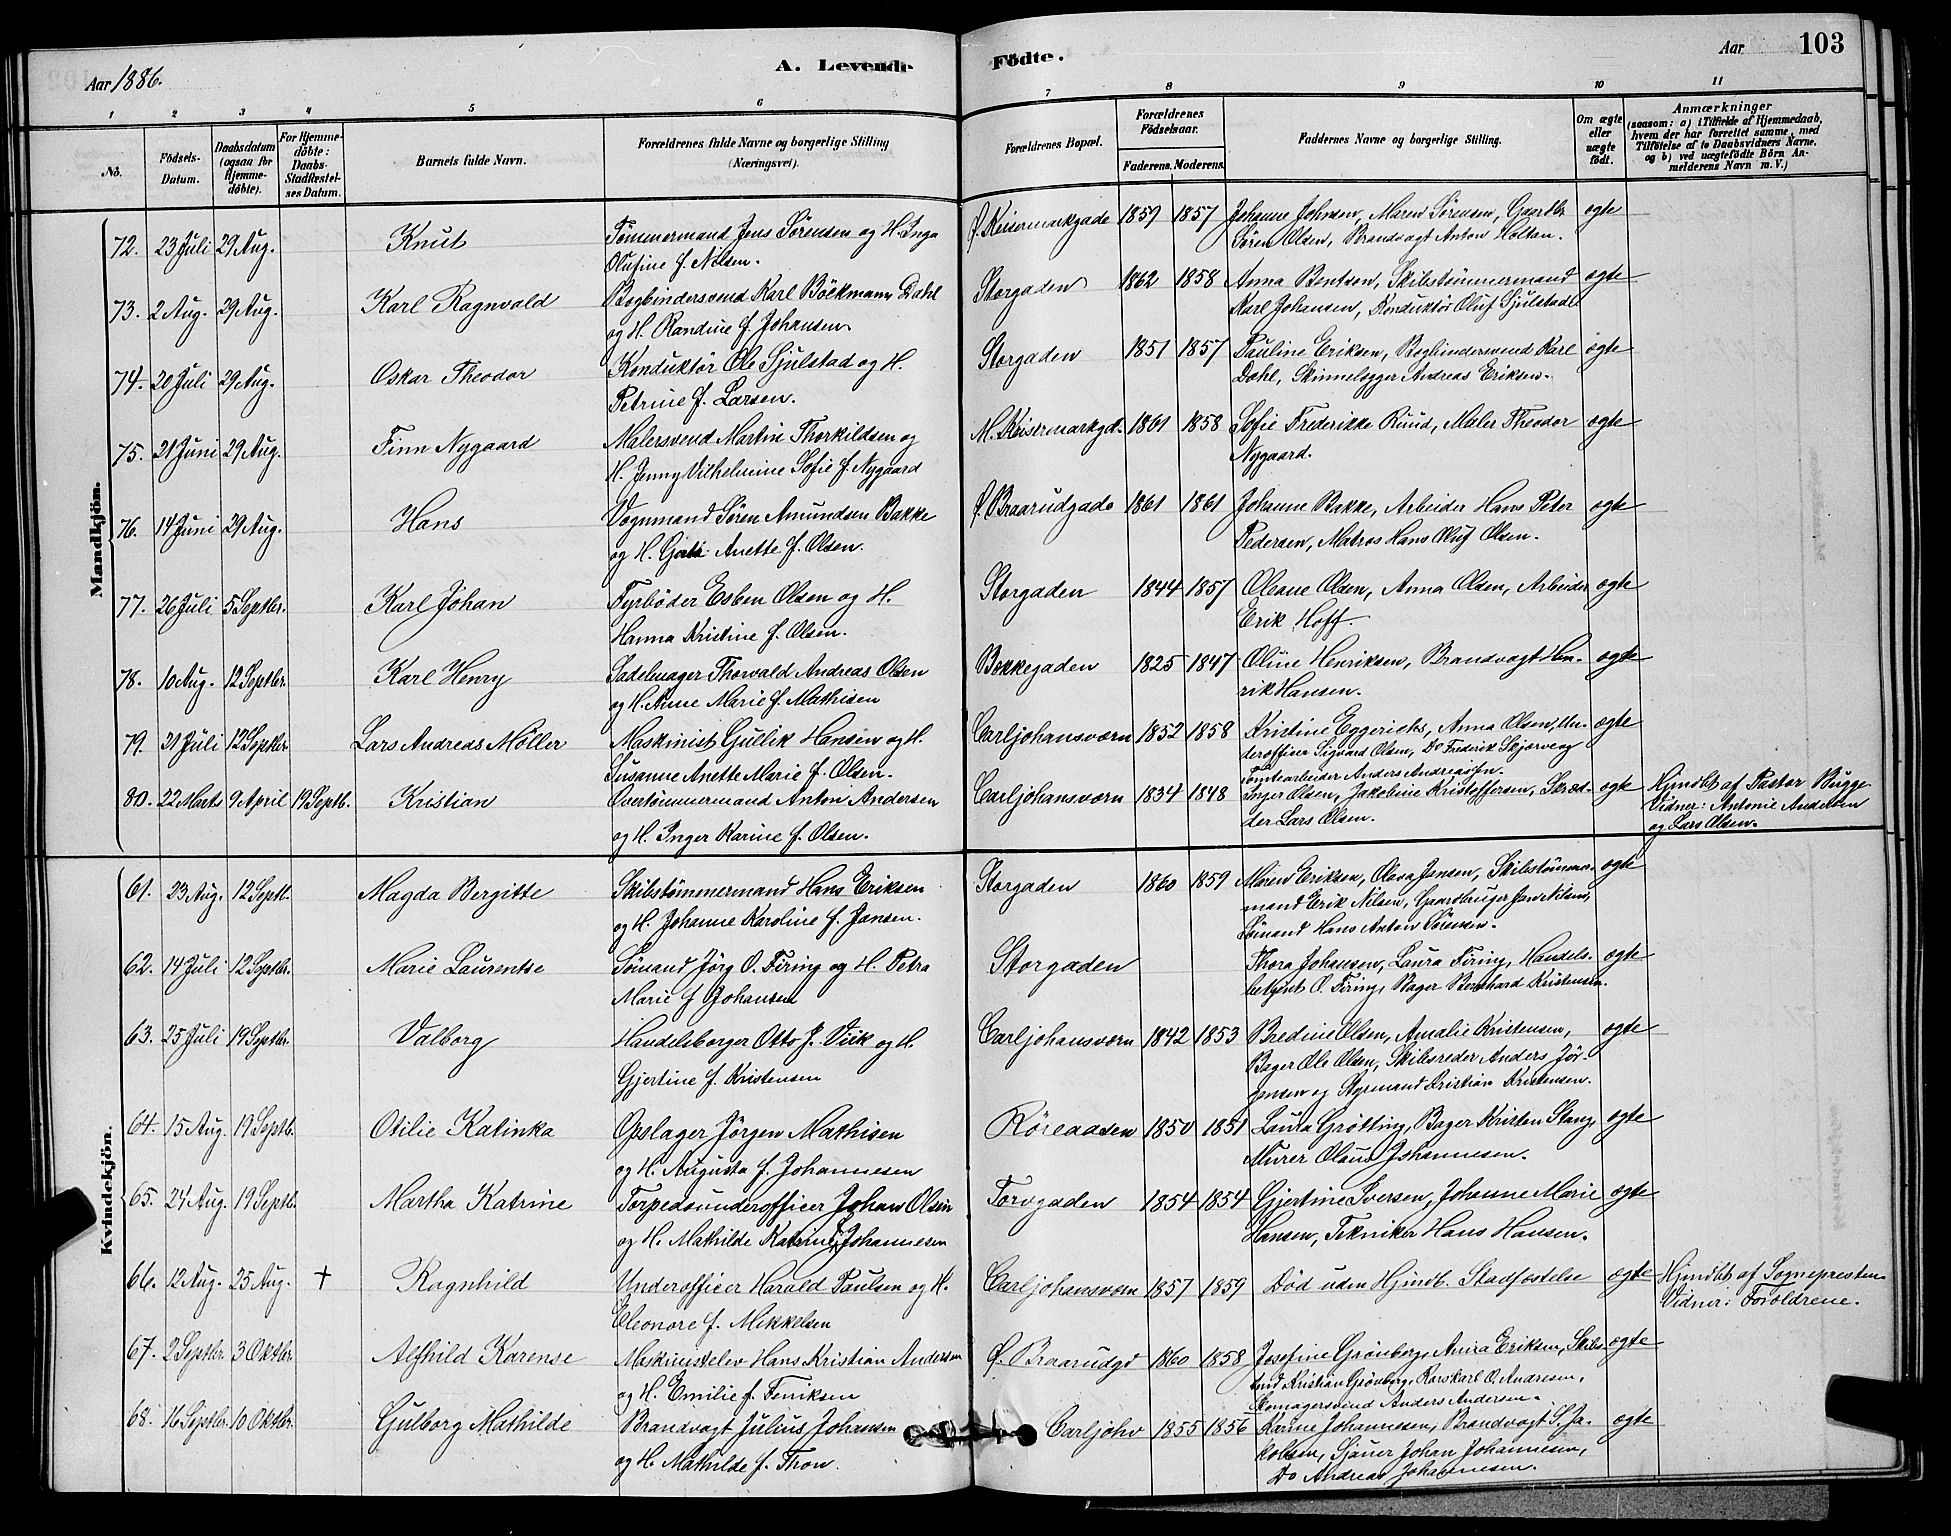 Aar 1886.
A. Levende
Födte.
Aar
103
1 2 3 4 5 6 7 8 9 10 11
No.
Födsels-Datum.
Daabsdatum (ogsaa for Hjemme-döbte).
For Hjemme-döbte: Daabs-Stadfæstel-ses Datum.
Barnets fulde Navn.
Forældrenes fulde Navne og borgerlige Stilling (Næringsvei).
Forældrenes Bopæl.
Forældrenes Födselsaar.
Faderens. Moderens.
Faddernes Navne og borgerlige Stilling.
Om ægte eller uægte födt.
Anmærkninger (saasom: a) i Tilfælde af Hjemmedaab, hvem der har forrettet samme, med Tilföielse af to Daabsvidners Navne, og b) ved uægtefödte Börn An-melderens Navn m. V.)
Mandkjön.
72. 23 Juli 29 Aug. Knut Tømmermand Jens Sørensen og H. Inga Ø. Keisermarkgade 1859 1857 Johanne Johnsen, Maren Sørensen, Gaardbr. ægte
Olufine f. Nilsen. Søren Olsen, Brandvagt Anton Holtan.
73. 2 Aug. 29 Aug. Karl Ragnvald Bogbindersvend Karl Böckmann Dahl Storgaden 1862 1858 Anna Bentsen, Skibstømmermand ægte
og H. Randine f. Johansen. Karl Johansen, Konduktör Oluf Sjulstad
74. 20 Juli 29 Aug. Oskar Theodor Konduktör Ole Sjulstad og H. Storgaden 1851 1857 Pauline Eriksen, Bogbindersvend Karl ægte
Petrine f. Larsen. Dahl, Skinnelægger Andreas Eriksen.
75. 21 Juni 29 Aug. Finn Nygaard Malersvend Martin Thorkildsen og M. Keisermarkgd. 1861 1858 Sofie Frederikke Ruud, Maler Theodor ægte
H. Jenny Vilhelmine Sofie f. Nygaard Nygaard.
76. 14 Juni 29 Aug. Hans Vognmand Søren Amundsen Bakke Ø. Braarudgade 1861 1861 Johanne Bakke, Arbeider Hans Peter ægte
og H. Anette f. Olsen. Pedersen, Matros Hans Oluf Olsen.
77. 26 Juli 5 Septbr. Karl Johan Fyrböder Esben Olsen og H. Storgaden 1844 1857 Oleane Olsen, Anna Olsen, Arbeider ægte
Hanna Kristine f. Olsen. Erik Hoff.
78. 10 Aug. 12 Septbr. Karl Henry Sadelmager Thorvald Andreas Olsen Bekkegaden 1825 1847 Oline Henriksen, Brandvagt Hen- ægte
og H. Anne Marie f. Mathisen rik Hansen.
79. 21 Juli 12 Septbr. Lars Andreas Möller Maskinist Gullik Hansen og H. Carljohansværn 1852 1858 Kristine Eggerichs, Anna Olsen, Un- ægte
Susanne Anette Marie f. Olsen. derofficer Sigvard Olsen, Do Frederik Skjørve og
Tomtearbeider Anders Andreassen.
80. 22 Marts 9 April 19 Septb. Kristian Overtømmermand Anton Andersen Carljohansværn 1834 1848 Inger Olsen, Jakobine Kristoffersen, Skræd- ægte Hjmdbt af Pastor Bugge
og H. Inger Karine f. Olsen. der Lars Olsen. Vidner: Antonie Andersen
og Lars Olsen.
Kvindekjön.
61. 23 Aug. 12 Septb. Magda Bergitte Skibstømmermand Hans Eriksen Storgaden 1860 1859 Maren Eriksen, Olava Jansen, Skibstømmer- ægte
og H. Johanne Karoline f. Jansen. mand Erik Nilsen, Gaardbruger Jan Nilsen,
Sømand Hans Anton Sørensen.
62. 14 Juli 12 Septbr. Marie Laurentse Sömand Jörg O. Firing og H. Petra Storgaden Thora Johansen, Laura Firing, Handels- ægte
Marie f Johansen betjent O. Firing, Bager Bernhard Kristensen.
63. 25 Juli 19 Septbr. Valborg Handelsborger Otto J. Viik og H. Carljohansværn 1842 1853 Bredine Olsen, Amalie Kristensen, ægte
Gjertine f. Kristensen Bager Ole Olsen, Skibsreder Anders Jör-
gensen og Styrmand Kristian Kristensen.
64. 15 Aug. 19 Septb. Otilie Katinka Opslager Jörgen Mathisen Röreaasen 1850 1851 Laura Grötting, Bager Kristen Stang, ægte
og H. Augusta f. Johannesen Murer Olaus Johannesen.
65. 24 Aug. 19 Septb. Martha Katrine Torpedounderofficer Johan Olsen Torvgaden 1854 1854 Gjertine Iversen, Johanne Marie ægte
og H. Mathilde Katrine f. Johannesen Hansen, Tekniker Hans Hansen.
66. 12 Aug. 25 Aug. † Ragnhild Underofficer Harald Paulsen og H. Carljohansværn 1857 1859 Död uden Hjmdb. Stadfæstelse ægte Hjmdbt af Sognepresten
Eleonore f. Mikkelsen Vidner: Forældrene.
67. 2 Septbr. 3 Oktbr. Alfhild Karense Maskinistelev Hans Kristian Andersen Ø. Braarudgd 1860 1858 Josefine Grönberg, Anna Eriksen, Skibs- ægte
og H. Emilie f. Henriksen Kristian Grönberg, Rorskarl O. Andresen,
Skomagersvend Anders Andersen.
68. 16 Septbr. 10 Oktbr. Gulborg Mathilde Brandvagt Julius Johansen Carljohv 1855 1856 Karine Johannesen, Brandvagt S. Ja- ægte
og H. Mathilde f. Thon. kobsen, Sjauer Johan Johannesen,
Do Andreas Johannesen.